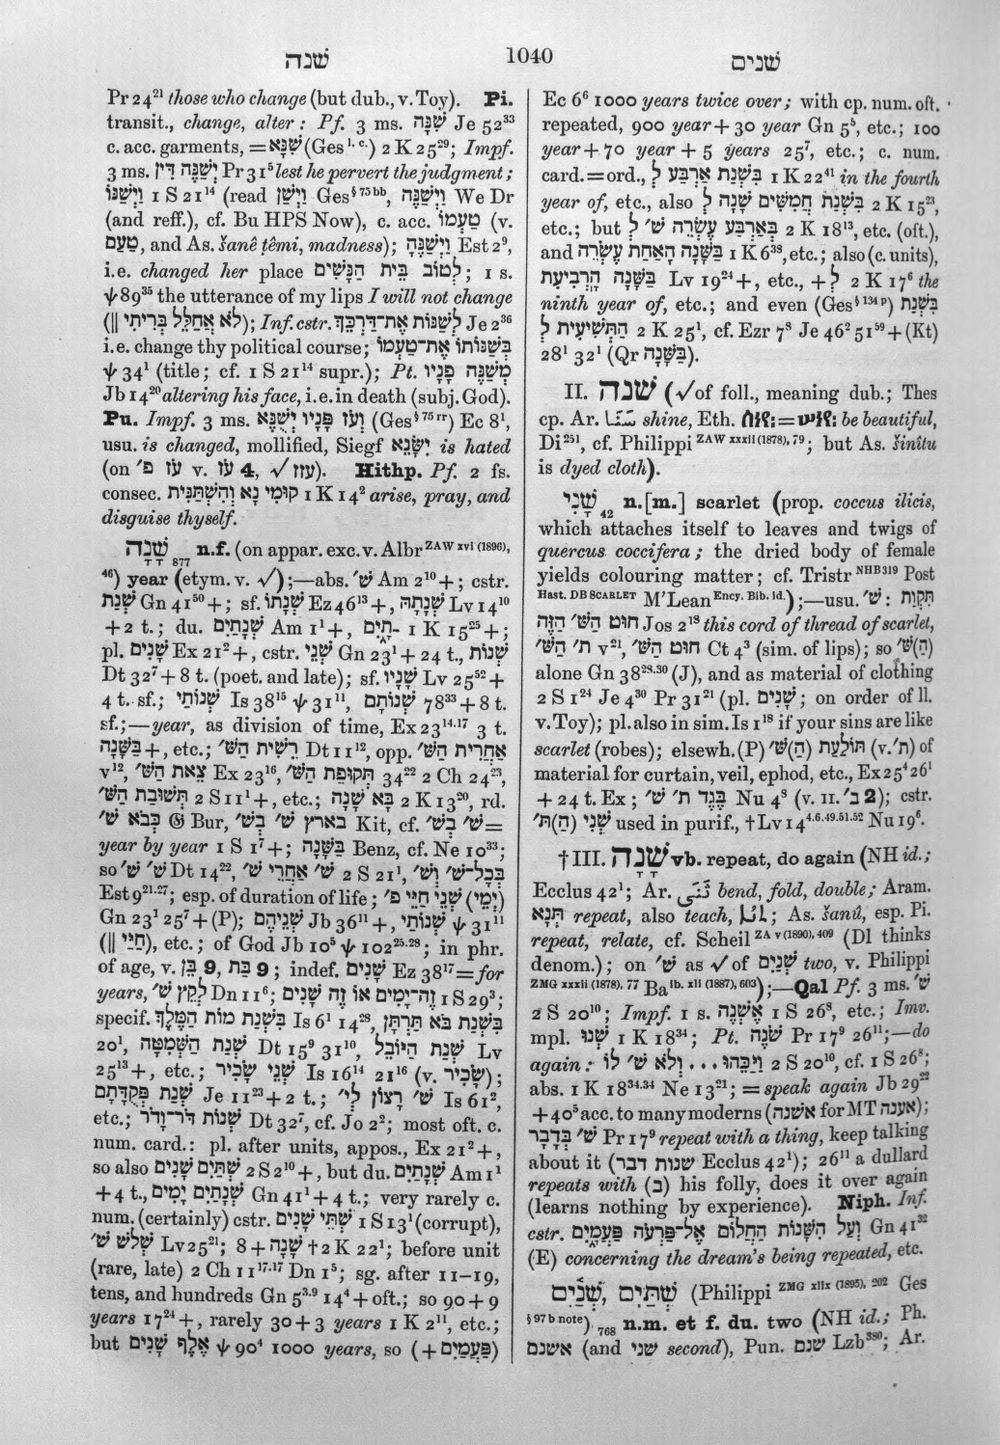 שׁנה
1040
שׁנים
Pr 24²¹ those who change (but dub., v. Toy). Pi.
transit., change, alter: Pf. 3 ms. שִׁנָּה Je 52³³
c. acc. garments, = שִׁנָּא (Ges ˡ·ᶜ·) 2 K 25²⁹; Impf.
3 ms. וִישַׁנֶּה דִּין Pr 31⁵ lest he pervert the judgment;
וַיְשַׁנּוֹ 1 S 21¹⁴ (read וַיְשַׁן Ges§ 75 bb, וַיְשַׁנֶּה We Dr
(and reff.), cf. Bu HPS Now), c. acc. טַעְמוֹ (v.
טַעַם, and As. šanê ṭêmi, madness); וַיְשַׁנֶּהָ Est 2⁹,
i.e. changed her place לְטוֹב בֵּית הַנָּשִׁים; 1 s.
ψ 89³⁵ the utterance of my lips I will not change
(‖ לֹא אֲחַלֵּל בְּרִיתִי); Inf. cstr. לְשַׁנּוֹת אֶת־דַּרְכֵּךְ Je 2³⁶
i.e. change thy political course; בְּשַׁנּוֹתוֹ אֶת־טַעְמוֹ
ψ 34¹ (title; cf. 1 S 21¹⁴ supr.); Pt. מְשַׁנֶּה פָנָיו
Jb 14²⁰ altering his face, i.e. in death (subj. God).
Pu. Impf. 3 ms. וְעֹז פָּנָיו יְשֻׁנֶּא (Ges§ 75 rr) Ec 8¹,
usu. is changed, mollified, Siegf יִשָּׂנֵא is hated
(on עֹז פ׳ v. עֹז 4, √ עזז). Hithp. Pf. 2 fs.
consec. קוּמִי נָא וְהִשְׁתַּנִּית 1 K 14² arise, pray, and
disguise thyself.
שָׁנָה 877 n.f. (on appar. exc. v. Albr ZAW xvi (1896),
46) year (etym. v. √);—abs. שׁ׳ Am 2¹⁰ +; cstr.
שְׁנַת Gn 41⁵⁰ +; sf. שְׁנָתוֹ Ez 46¹³ +, שְׁנָתָהּ Lv 14¹⁰
+ 2 t.; du. שְׁנָתַיִם Am 1¹ +, ־תָ֑יִם 1 K 15²⁵ +;
pl. שָׁנִים Ex 21² +, cstr. שְׁנֵי Gn 23¹ + 24 t., שְׁנוֹת
Dt 32⁷ + 8 t. (poet. and late); sf. שָׁנָיו Lv 25⁵² +
4 t. sf.; שְׁנוֹתַי Is 38¹⁵ ψ 31¹¹, שְׁנוֹתָם 78³³ + 8 t.
sf.;—year, as division of time, Ex 23¹⁴·¹⁷ 3 t.
בַּשָּׁנָה +, etc.; רֵשִׁית הַשּׁ׳ Dt 11¹², opp. אַחֲרִית הַשּׁ׳
v¹², צֵאת הַשּׁ׳ Ex 23¹⁶, תְּקוּפַת הַשּׁ׳ 34²² 2 Ch 24²³,
תְּשׁוּבַת הַשּׁ׳ 2 S 11¹ +, etc.; בָּא שָׁנָה 2 K 13²⁰, rd.
כְּבֹא שׁ׳ 𝔊 Bur, בארץ שׁ׳ בְשׁ׳ Kit, cf. שׁ׳ בְשׁ׳ =
year by year 1 S 1⁷ +; בַּשָּׁנָה Benz, cf. Ne 10³³;
so שׁ׳ שׁ׳ Dt 14²², שׁ׳ אַחֲרֵי שׁ׳ 2 S 21¹, בְּכָל־שׁ׳ וְשׁ׳
Est 9²¹·²⁷; esp. of duration of life; (יְמֵי) שְׁנֵי חַיֵּי פ׳
Gn 23¹ 25⁷ + (P); שְׁנֵיהֶם Jb 36¹¹ +, שְׁנוֹתַי ψ 31¹¹
(‖ חַיַּי), etc.; of God Jb 10⁵ ψ 102²⁵·²⁸; in phr.
of age, v. בֵּן 9, בַּת 9; indef. שָׁנִים Ez 38¹⁷ = for
years, לְקֵץ שׁ׳ Dn 11⁶; זֶה־יָמִים אוֹ זֶה שָׁנִים 1 S 29³;
specif. בִּשְׁנַת מוֹת הַמֶּלֶךְ Is 6¹ 14²⁸, בִּשְׁנַת בֹּא תַרְתָּן
20¹, שְׁנַת הַשְּׁמִטָּה Dt 15⁹ 31¹⁰, שְׁנַת הַיּוֹבֵל Lv
25¹³ +, etc.; שְׁנֵי שָׂכִיר Is 16¹⁴ 21¹⁶ (v. שָׂכִיר);
שְׁנַת פְּקֻדָּתָם Je 11²³ + 2 t.; שׁ׳ רָצוֹן לְי׳ Is 61²,
etc.; שְׁנוֹת דּוֹר־וָדוֹר Dt 32⁷, cf. Jo 2²; most oft. c.
num. card.: pl. after units, appos., Ex 21² +,
so also שְׁתַּיִם שָׁנִים 2 S 2¹⁰ +, but du. שְׁנָתַיִם Am 1¹
+ 4 t., שְׁנָתַיִם יָמִים Gn 41¹ + 4 t.; very rarely c.
num. (certainly) cstr. שְׁתֵּי שָׁנִים 1 S 13¹ (corrupt),
שְׁלֹשׁ שׁ׳ Lv 25²¹; 8 + שָׁנָה † 2 K 22¹; before unit
(rare, late) 2 Ch 11¹⁷·¹⁷ Dn 1⁵; sg. after 11–19,
tens, and hundreds Gn 5³·⁹ 14⁴ + oft.; so 90 + 9
years 17²⁴ +, rarely 30 + 3 years 1 K 2¹¹, etc.;
but אֶלֶף שָׁנִים ψ 90⁴ 1000 years, so (+ פַּעֲמַיִם)
Ec 6⁶ 1000 years twice over; with cp. num. oft.
repeated, 900 year + 30 year Gn 5⁵, etc.; 100
year + 70 year + 5 years 25⁷, etc.; c. num.
card. = ord., בִּשְׁנַת אַרְבַּע לְ 1 K 22⁴¹ in the fourth
year of, etc., also בִּשְׁנַת חֲמִשִּׁים שָׁנָה לְ 2 K 15²³,
etc.; but בְּאַרְבַּע עֶשְׂרֵה שׁ׳ לְ 2 K 18¹³, etc. (oft.),
and בַּשָּׁנָה הָאַחַת עֶשְׂרֵה 1 K 6³⁸, etc.; also (c. units),
בַּשָּׁנָה הָרְבִיעִת Lv 19²⁴ +, etc., + לְ 2 K 17⁶ the
ninth year of, etc.; and even (Ges§ 134 p) בִּשְׁנַת
הַתְּשִׁיעִית לְ 2 K 25¹, cf. Ezr 7⁸ Je 46² 51⁵⁹ + (Kt)
28¹ 32¹ (Qr בַּשָּׁנָה).
II. שׁנה (√ of foll., meaning dub.; Thes
cp. Ar. shine, Eth. be beautiful,
Di²⁵¹, cf. Philippi ZAW xxxii (1878), 79; but As. šinîtu
is dyed cloth).
שָׁנִי 42 n.[m.] scarlet (prop. coccus ilicis,
which attaches itself to leaves and twigs of
quercus coccifera; the dried body of female
yields colouring matter; cf. Tristr NHB 319 Post
Hast. DB SCARLET M'Lean Ency. Bib. id.);—usu. שׁ׳: תִּקְוַת
חוּט הַשּׁ׳ הַזֶּה Jos 2¹⁸ this cord of thread of scarlet,
ת׳ הַשּׁ׳ v²¹, חוּט הַשּׁ׳ Ct 4³ (sim. of lips); so (הַ)שּׁ׳
alone Gn 38²⁸·³⁰ (J), and as material of clothing
2 S 1²⁴ Je 4³⁰ Pr 31²¹ (pl. שָׁנִים; on order of ll.
v. Toy); pl. also in sim. Is 1¹⁸ if your sins are like
scarlet (robes); elsewh. (P) תּוֹלַעַת (הַ)שּׁ׳ (v. ת׳) of
material for curtain, veil, ephod, etc., Ex 25⁴ 26¹
+ 24 t. Ex; בֶּגֶד ת׳ שׁ׳ Nu 4⁸ (v. II. ב׳ 2); cstr.
שְׁנִי (הַ)תּ׳ used in purif., † Lv 14⁴·⁶·⁴⁹·⁵¹·⁵² Nu 19⁶.
† III. שָׁנָה vb. repeat, do again (NH id.;
Ecclus 42¹; Ar. ثَنَى bend, fold, double; Aram.
תְּנָא repeat, also teach, ; As. šanû, esp. Pi.
repeat, relate, cf. Scheil ZA v (1890), 409 (Dl thinks
denom.); on שׁ׳ as √ of שְׁנַיִם two, v. Philippi
ZMG xxxii (1878), 77 Ba ib. xli (1887), 603);—Qal Pf. 3 ms. שׁ׳
2 S 20¹⁰; Impf. 1 s. אֶשְׁנֶה 1 S 26⁸, etc.; Imv.
mpl. שְׁנוּ 1 K 18³⁴; Pt. שֹׁנֶה Pr 17⁹ 26¹¹;—do
again: וַיַּכֵּהוּ . . . וְלֹא שׁ׳ לוֹ 2 S 20¹⁰, cf. 1 S 26⁸;
abs. 1 K 18³⁴·³⁴ Ne 13²¹; = speak again Jb 29²²
+ 40⁵ acc. to many moderns (אשנה for MT אענה);
שׁ׳ בְּדָבָר Pr 17⁹ repeat with a thing, keep talking
about it (שנות דבר Ecclus 42¹); 26¹¹ a dullard
repeats with (בְּ) his folly, does it over again
(learns nothing by experience). Niph. Inf.
cstr. וְעַל הִשָּׁנוֹת הַחֲלוֹם אֶל־פַּרְעֹה פַּעֲמָ֑יִם Gn 41³²
(E) concerning the dream's being repeated, etc.
שְׁנַיִם, שְׁתַּיִם (Philippi ZMG xlix (1895), 202 Ges
§ 97 b note) 768 n.m. et f. du. two (NH id.; Ph.
אשנם (and שני second), Pun. שנם Lzb³⁸⁰; Ar.